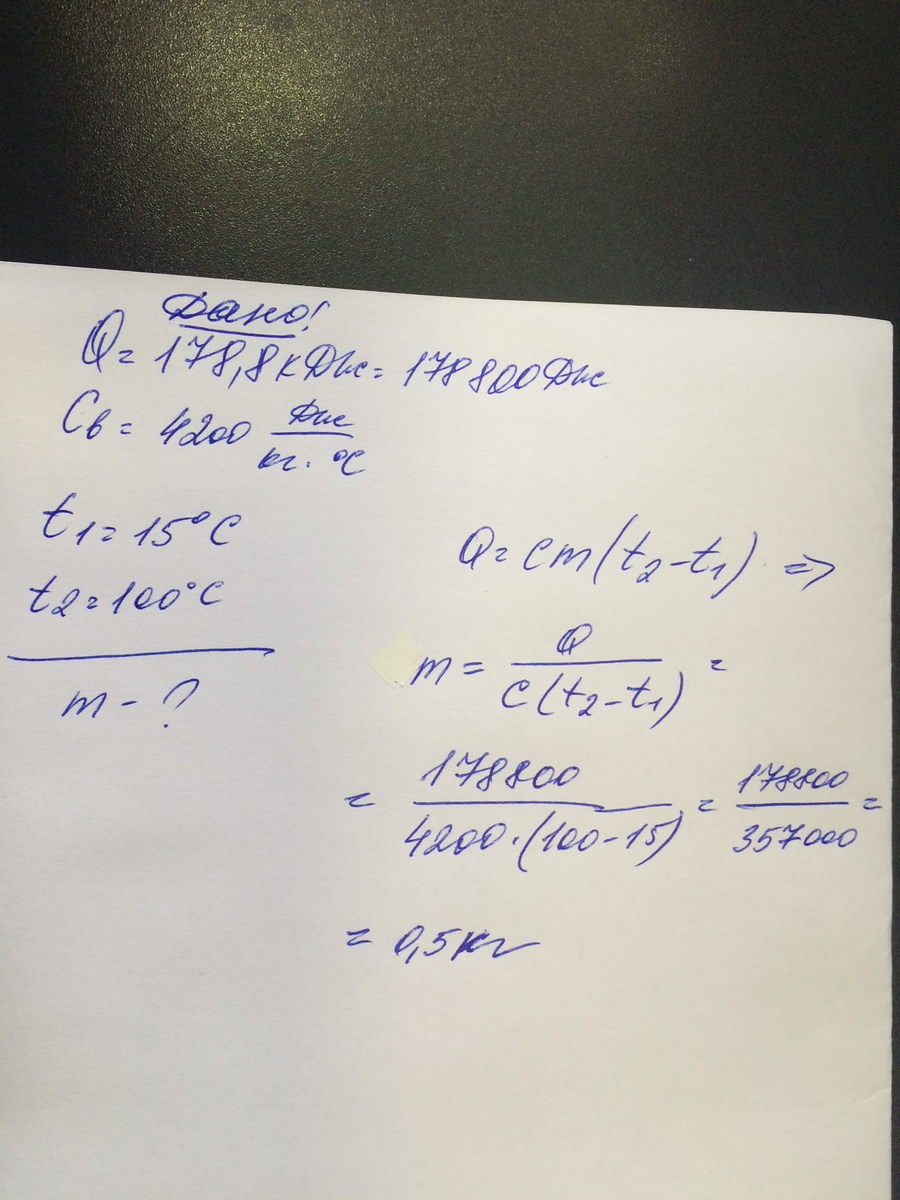 Дано!
Q = 178,8 кДж = 178800 Дж
Cв = 4200 Дж/кг·°C
t1 = 15°C
t2 = 100°C
m - ?
Q = cm(t2-t1) =>
m = Q/C(t2-t1) =
= 178800/4200·(100-15) = 178800/357000 =
= 0,5 кг